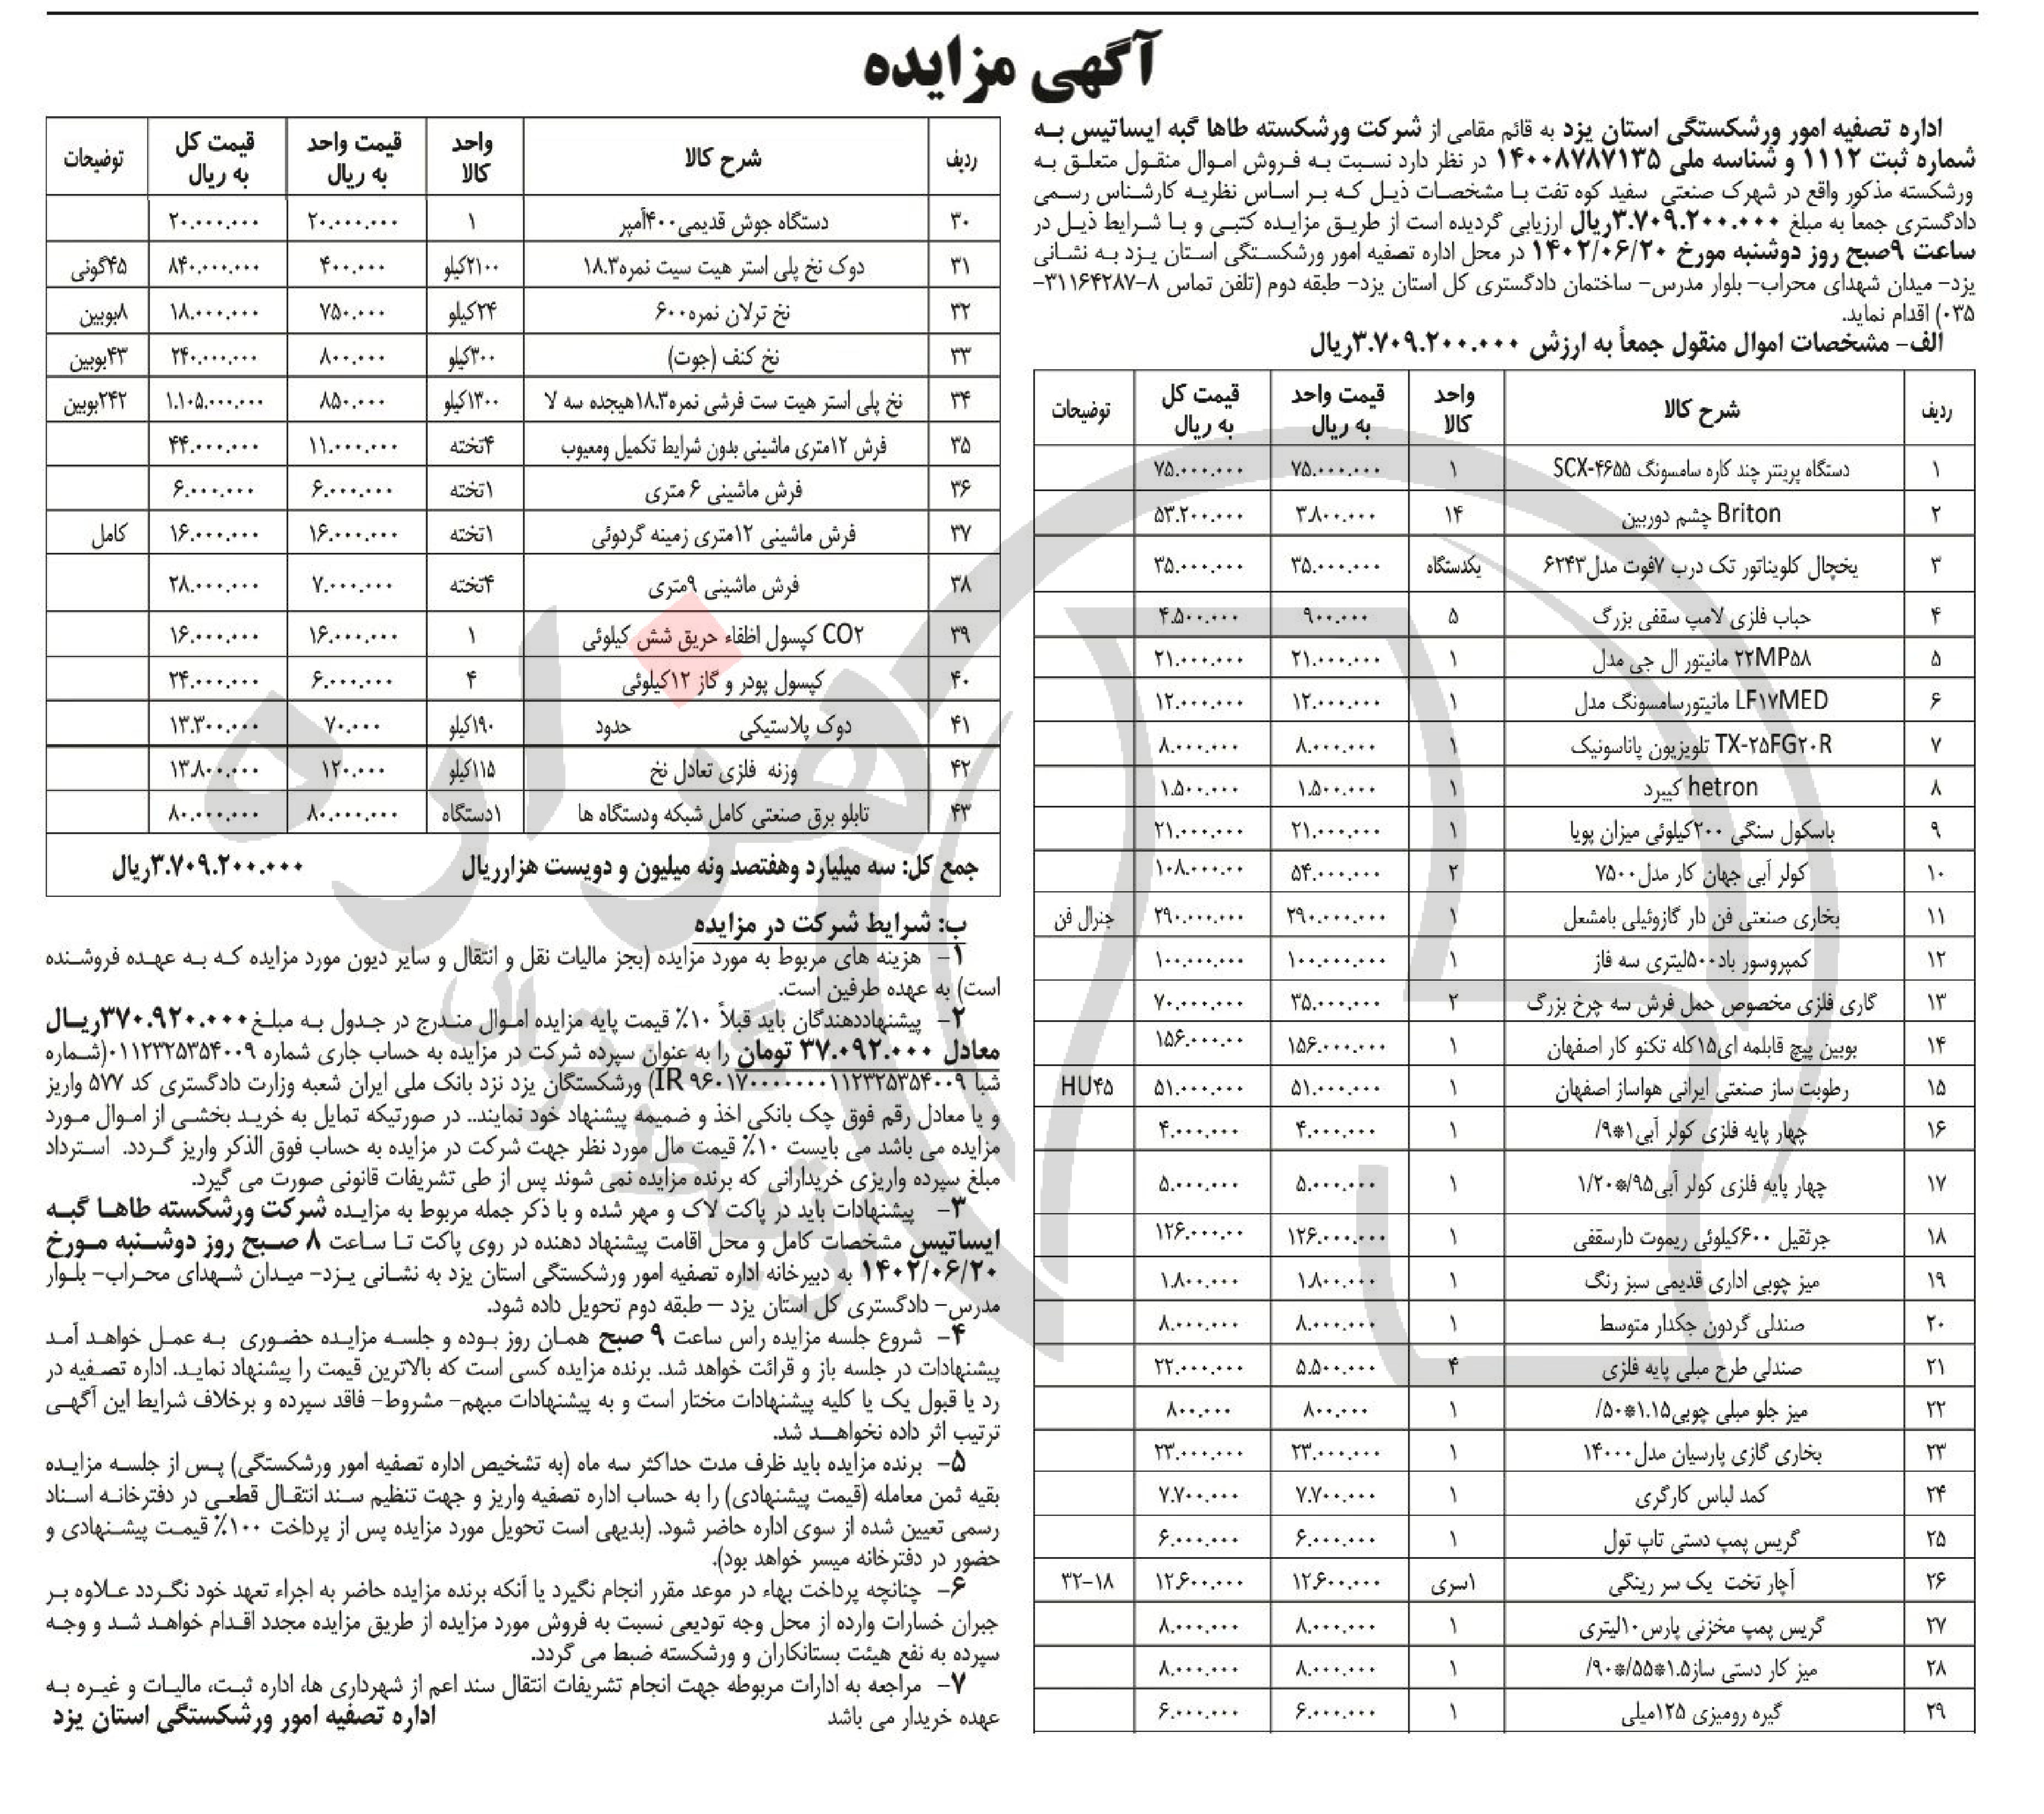 آگهی مزایده
اداره تصفیه امور ورشکستگی استان یزد به قائم مقامی از شرکت ورشکسته طاها گبه ایساتیس به
شماره ثبت ۱۱۱۲ و شناسه ملی ۱۴۰۰۸۷۸۷۱۳۵ در نظر دارد نسبت به فروش اموال منقول متعلق به
ورشکسته مذکور واقع در شهرک صنعتی سفید کوه تفت با مشخصات ذیل که بر اساس نظریه کارشناس رسمی
دادگستری جمعاً به مبلغ ۳.۷۰۹.۲۰۰.۰۰۰ریال ارزیابی گردیده است از طریق مزایده کتبی و با شرایط ذیل در
ساعت ۹صبح روز دوشنبه مورخ ۱۴۰۲/۰۶/۲۰ در محل اداره تصفیه امور ورشکستگی استان یزد به نشانی
یزد- میدان شهدای محراب- بلوار مدرس- ساختمان دادگستری کل استان یزد- طبقه دوم (تلفن تماس ۸-۳۱۱۶۴۲۸۷-
۰۳۵) اقدام نماید.
الف- مشخصات اموال منقول جمعاً به ارزش ۳.۷۰۹.۲۰۰.۰۰۰ریال
ردیف شرح کالا واحد کالا قیمت واحد به ریال قیمت کل به ریال توضیحات
۱ دستگاه پرینتر چند کاره سامسونگ SCX-۴۶۵۵ ۱ ۷۵.۰۰۰.۰۰۰ ۷۵.۰۰۰.۰۰۰
۲ Briton چشم دوربین ۱۴ ۳.۸۰۰.۰۰۰ ۵۳.۲۰۰.۰۰۰
۳ یخچال کلویناتور تک درب ۷فوت مدل۶۲۴۳ یکدستگاه ۳۵.۰۰۰.۰۰۰ ۳۵.۰۰۰.۰۰۰
۴ حباب فلزی لامپ سقفی بزرگ ۵ ۹۰۰.۰۰۰ ۴.۵۰۰.۰۰۰
۵ ۲۲MP۵۸ مانیتور ال جی مدل ۱ ۲۱.۰۰۰.۰۰۰ ۲۱.۰۰۰.۰۰۰
۶ LF۱۷MED مانیتورسامسونگ مدل ۱ ۱۲.۰۰۰.۰۰۰ ۱۲.۰۰۰.۰۰۰
۷ TX-۲۵FG۲۰R تلویزیون پاناسونیک ۱ ۸.۰۰۰.۰۰۰ ۸.۰۰۰.۰۰۰
۸ hetron کیبرد ۱ ۱.۵۰۰.۰۰۰ ۱.۵۰۰.۰۰۰
۹ باسکول سنگی ۲۰۰کیلوئی میزان پویا ۱ ۲۱.۰۰۰.۰۰۰ ۲۱.۰۰۰.۰۰۰
۱۰ کولر آبی جهان کار مدل۷۵۰۰ ۲ ۵۴.۰۰۰.۰۰۰ ۱۰۸.۰۰۰.۰۰
۱۱ بخاری صنعتی فن دار گازوئیلی بامشعل ۱ ۲۹۰.۰۰۰.۰۰۰ ۲۹۰.۰۰۰.۰۰۰ جنرال فن
۱۲ کمپروسور باد۵۰۰لیتری سه فاز ۱ ۱۰۰.۰۰۰.۰۰۰ ۱۰۰.۰۰۰.۰۰۰
۱۳ گاری فلزی مخصوص حمل فرش سه چرخ بزرگ ۲ ۳۵.۰۰۰.۰۰۰ ۷۰.۰۰۰.۰۰۰
۱۴ بوبین پیچ قابلمه ای۱۵کله تکنو کار اصفهان ۱ ۱۵۶.۰۰۰.۰۰۰ ۱۵۶.۰۰۰.۰۰
۱۵ رطوبت ساز صنعتی ایرانی هواساز اصفهان ۱ ۵۱.۰۰۰.۰۰۰ ۵۱.۰۰۰.۰۰۰ HU۴۵
۱۶ چهار پایه فلزی کولر آبی۱*۹/ ۱ ۴.۰۰۰.۰۰۰ ۴.۰۰۰.۰۰۰
۱۷ چهار پایه فلزی کولر آبی۹۵/*۱/۲۰ ۱ ۵.۰۰۰.۰۰۰ ۵.۰۰۰.۰۰۰
۱۸ جرثقیل ۶۰۰کیلوئی ریموت دارسقفی ۱ ۱۲۶.۰۰۰.۰۰۰ ۱۲۶.۰۰۰.۰۰۰
۱۹ میز چوبی اداری قدیمی سبز رنگ ۱ ۱.۸۰۰.۰۰۰ ۱.۸۰۰.۰۰۰
۲۰ صندلی گردون جکدار متوسط ۱ ۸.۰۰۰.۰۰۰ ۸.۰۰۰.۰۰۰
۲۱ صندلی طرح مبلی پایه فلزی ۴ ۵.۵۰۰.۰۰۰ ۲۲.۰۰۰.۰۰۰
۲۲ میز جلو مبلی چوبی۱.۱۵*۵۰/ ۱ ۸۰۰.۰۰۰ ۸۰۰.۰۰۰
۲۳ بخاری گازی پارسیان مدل۱۴۰۰۰ ۱ ۲۳.۰۰۰.۰۰۰ ۲۳.۰۰۰.۰۰۰
۲۴ کمد لباس کارگری ۱ ۷.۷۰۰.۰۰۰ ۷.۷۰۰.۰۰۰
۲۵ گریس پمپ دستی تاپ تول ۱ ۶.۰۰۰.۰۰۰ ۶.۰۰۰.۰۰۰
۲۶ آچار تخت یک سر رینگی ۱سری ۱۲.۶۰۰.۰۰۰ ۱۲.۶۰۰.۰۰۰ ۱۸-۳۲
۲۷ گریس پمپ مخزنی پارس۱۰لیتری ۱ ۸.۰۰۰.۰۰۰ ۸.۰۰۰.۰۰۰
۲۸ میز کار دستی ساز۱.۵*۵۵/*۹۰/ ۱ ۸.۰۰۰.۰۰۰ ۸.۰۰۰.۰۰۰
۲۹ گیره رومیزی ۱۲۵میلی ۱ ۶.۰۰۰.۰۰۰ ۶.۰۰۰.۰۰۰
ردیف شرح کالا واحد کالا قیمت واحد به ریال قیمت کل به ریال توضیحات
۳۰ دستگاه جوش قدیمی۴۰۰آمپر ۱ ۲۰.۰۰۰.۰۰۰ ۲۰.۰۰۰.۰۰۰
۳۱ دوک نخ پلی استر هیت سیت نمره۱۸.۳ ۲۱۰۰کیلو ۴۰۰.۰۰۰ ۸۴۰.۰۰۰.۰۰۰ ۴۵گونی
۳۲ نخ ترلان نمره۶۰۰ ۲۴کیلو ۷۵۰.۰۰۰ ۱۸.۰۰۰.۰۰۰ ۸بوبین
۳۳ نخ کنف (جوت) ۳۰۰کیلو ۸۰۰.۰۰۰ ۲۴۰.۰۰۰.۰۰۰ ۴۳بوبین
۳۴ نخ پلی استر هیت ست فرشی نمره۱۸.۳هیجده سه لا ۱۳۰۰کیلو ۸۵۰.۰۰۰ ۱.۱۰۵.۰۰۰.۰۰۰ ۲۴۲بوبین
۳۵ فرش ۱۲متری ماشینی بدون شرایط تکمیل ومعیوب ۴تخته ۱۱.۰۰۰.۰۰۰ ۴۴.۰۰۰.۰۰۰
۳۶ فرش ماشینی ۶ متری ۱تخته ۶.۰۰۰.۰۰۰ ۶.۰۰۰.۰۰۰
۳۷ فرش ماشینی ۱۲متری زمینه گردوئی ۱تخته ۱۶.۰۰۰.۰۰۰ ۱۶.۰۰۰.۰۰۰ کامل
۳۸ فرش ماشینی ۹متری ۴تخته ۷.۰۰۰.۰۰۰ ۲۸.۰۰۰.۰۰۰
۳۹ CO۲ کپسول اطفاء حریق شش کیلوئی ۱ ۱۶.۰۰۰.۰۰۰ ۱۶.۰۰۰.۰۰۰
۴۰ کپسول پودر و گاز ۱۲کیلوئی ۴ ۶.۰۰۰.۰۰۰ ۲۴.۰۰۰.۰۰۰
۴۱ دوک پلاستیکی حدود ۱۹۰کیلو ۷۰.۰۰۰ ۱۳.۳۰۰.۰۰۰
۴۲ وزنه فلزی تعادل نخ ۱۱۵کیلو ۱۲۰.۰۰۰ ۱۳.۸۰۰.۰۰۰
۴۳ تابلو برق صنعتی کامل شبکه ودستگاه ها ۱دستگاه ۸۰.۰۰۰.۰۰۰ ۸۰.۰۰۰.۰۰۰
جمع کل: سه میلیارد وهفتصد ونه میلیون و دویست هزارریال ۳.۷۰۹.۲۰۰.۰۰۰ریال
ب: شرایط شرکت در مزایده
۱- هزینه های مربوط به مورد مزایده (بجز مالیات نقل و انتقال و سایر دیون مورد مزایده که به عهده فروشنده
است) به عهده طرفین است.
۲- پیشنهاددهندگان باید قبلاً ۱۰٪ قیمت پایه مزایده اموال مندرج در جدول به مبلغ۳۷۰.۹۲۰.۰۰۰ریال
معادل ۳۷.۰۹۲.۰۰۰ تومان را به عنوان سپرده شرکت در مزایده به حساب جاری شماره ۰۱۱۲۳۲۵۳۵۴۰۰۹(شماره
شبا IR ۹۶۰۱۷۰۰۰۰۰۰۰۱۱۲۳۲۵۳۵۴۰۰۹) ورشکستگان یزد نزد بانک ملی ایران شعبه وزارت دادگستری کد ۵۷۷ واریز
و یا معادل رقم فوق چک بانکی اخذ و ضمیمه پیشنهاد خود نمایند.. در صورتیکه تمایل به خرید بخشی از اموال مورد
مزایده می باشد می بایست ۱۰٪ قیمت مال مورد نظر جهت شرکت در مزایده به حساب فوق الذکر واریز گردد. استرداد
مبلغ سپرده واریزی خریدارانی که برنده مزایده نمی شوند پس از طی تشریفات قانونی صورت می گیرد.
۳- پیشنهادات باید در پاکت لاک و مهر شده و با ذکر جمله مربوط به مزایده شرکت ورشکسته طاها گبه
ایساتیس مشخصات کامل و محل اقامت پیشنهاد دهنده در روی پاکت تا ساعت ۸ صبح روز دوشنبه مورخ
۱۴۰۲/۰۶/۲۰ به دبیرخانه اداره تصفیه امور ورشکستگی استان یزد به نشانی یزد- میدان شهدای محراب- بلوار
مدرس- دادگستری کل استان یزد – طبقه دوم تحویل داده شود.
۴- شروع جلسه مزایده راس ساعت ۹ صبح همان روز بوده و جلسه مزایده حضوری به عمل خواهد آمد
پیشنهادات در جلسه باز و قرائت خواهد شد. برنده مزایده کسی است که بالاترین قیمت را پیشنهاد نماید. اداره تصفیه در
رد یا قبول یک یا کلیه پیشنهادات مختار است و به پیشنهادات مبهم- مشروط- فاقد سپرده و برخلاف شرایط این آگهی
ترتیب اثر داده نخواهد شد.
۵- برنده مزایده باید ظرف مدت حداکثر سه ماه (به تشخیص اداره تصفیه امور ورشکستگی) پس از جلسه مزایده
بقیه ثمن معامله (قیمت پیشنهادی) را به حساب اداره تصفیه واریز و جهت تنظیم سند انتقال قطعی در دفترخانه اسناد
رسمی تعیین شده از سوی اداره حاضر شود. (بدیهی است تحویل مورد مزایده پس از پرداخت ۱۰۰٪ قیمت پیشنهادی و
حضور در دفترخانه میسر خواهد بود).
۶- چنانچه پرداخت بهاء در موعد مقرر انجام نگیرد یا آنکه برنده مزایده حاضر به اجراء تعهد خود نگردد علاوه بر
جبران خسارات وارده از محل وجه تودیعی نسبت به فروش مورد مزایده از طریق مزایده مجدد اقدام خواهد شد و وجه
سپرده به نفع هیئت بستانکاران و ورشکسته ضبط می گردد.
۷- مراجعه به ادارات مربوطه جهت انجام تشریفات انتقال سند اعم از شهرداری ها، اداره ثبت، مالیات و غیره به
عهده خریدار می باشد
اداره تصفیه امور ورشکستگی استان یزد